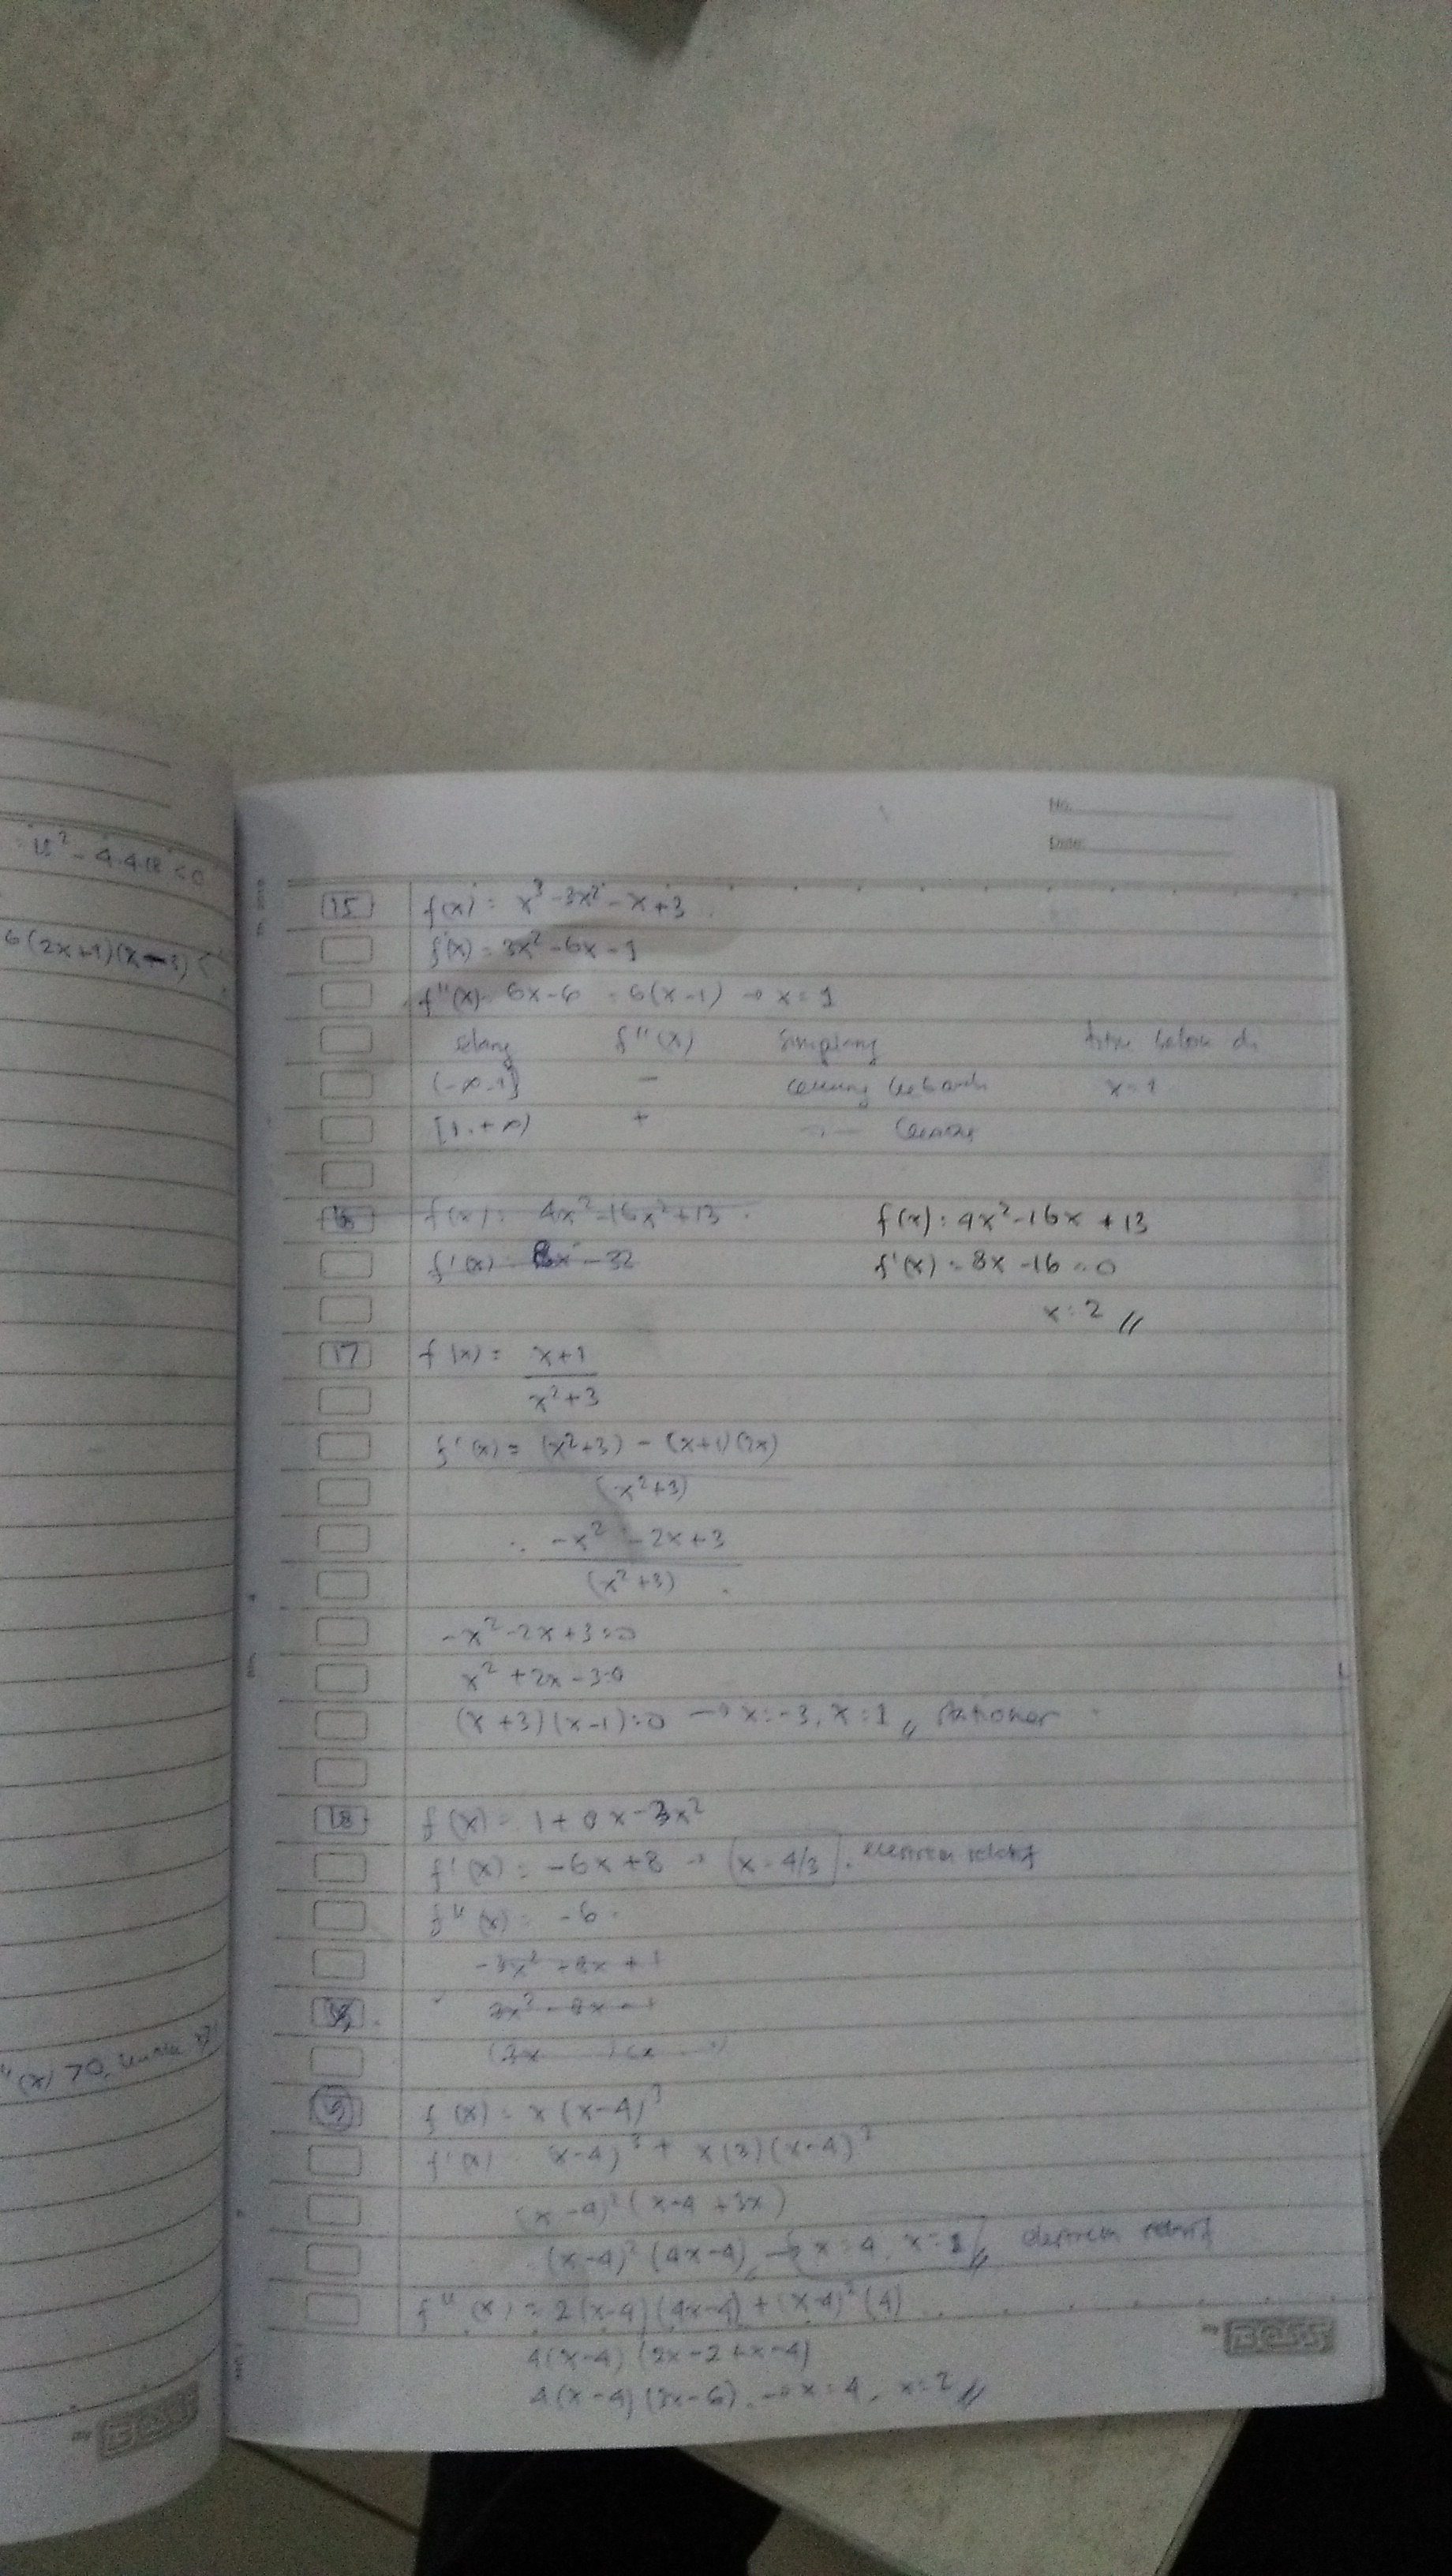 No.
Date:
: 15² - 4.4.18 < 0
6(2x+1)(x-3) <
"(x) > 0,
15 f(x) = x³ - 3x² - x + 3
f'(x) = 3x² - 6x - 1
f"(x) = 6x - 6 = 6(x-1) → x = 1
selang f"(x) simpulang titik belok di
(-∞, 1] - cekung kebawah x = 1
[1, +∞) +
16 f(x) = 4x² - 16x² + 13 f(x) = 4x² - 16x + 13
f'(x) = 8x - 32 f'(x) = 8x - 16 = 0
x = 2 //
17 f(x) = x+1
x²+3
f'(x) = (x²+3) - (x+1)(2x)
(x²+3)
-x² - 2x + 3
(x²+3)
-x² - 2x + 3 = 0
x² + 2x - 3 = 0
(x+3)(x-1) = 0 → x = -3, x = 1 // stationer
18 f(x) = 1 + 8x - 3x²
f'(x) = -6x + 8 → x = 4/3, ekstrem relatif
f"(x) = -6
-3x² + 8x + 1
3x² - 8x - 1
(3x )(x )
19 f(x) = x(x-4)³
f'(x) = (x-4)³ + x(3)(x-4)²
(x-4)²(x-4+3x)
(x-4)²(4x-4) → x = 4, x = 1 // ekstrem relatif
f"(x) = 2(x-4)(4x-4) + (x-4)²(4)
4(x-4)(2x-2+x-4)
4(x-4)(3x-6) → x = 4, x = 2 //
my BOSS
my BOSS